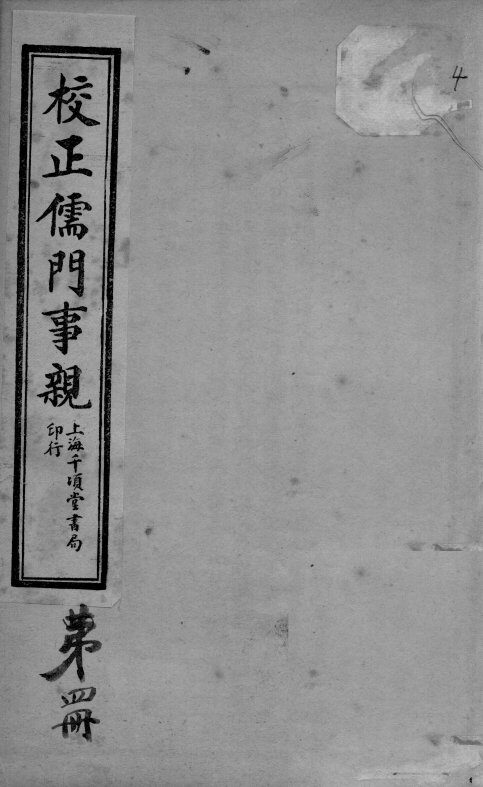 校正儒門事親
上海千頃堂書局
印行
第四冊
4